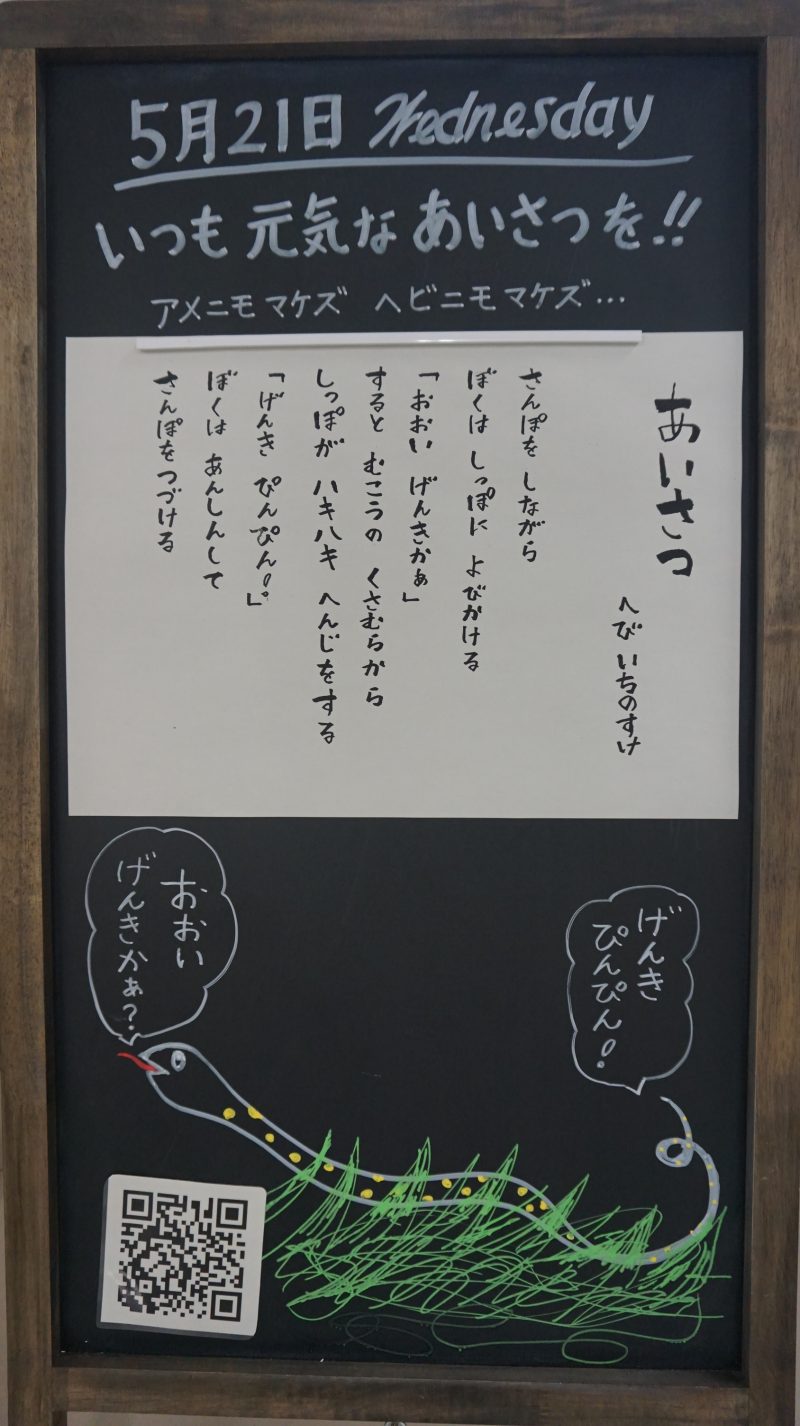 5月21日 Wednesday
いつも 元気な あいさつを!!
アメニモマケズ ヘビニモマケズ…
あいさつ
へび いちのすけ
さんぽを しながら
ぼくは しっぽに よびかける
「おおい げんきかぁ」
すると むこうの くさむらから
しっぽが ハキハキ へんじをする
「げんき ぴんぴん!」
ぼくは あんしんして
さんぽを つづける
おおい
げんきかぁ?
げんき
ぴんぴん!